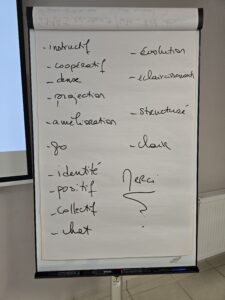 - instructif
- coopératif
- dense
- projection
- amélioration
- go
- identité
- positif
- collectif
- chat
- évolution
- éclaircissement
- structuré
Merci